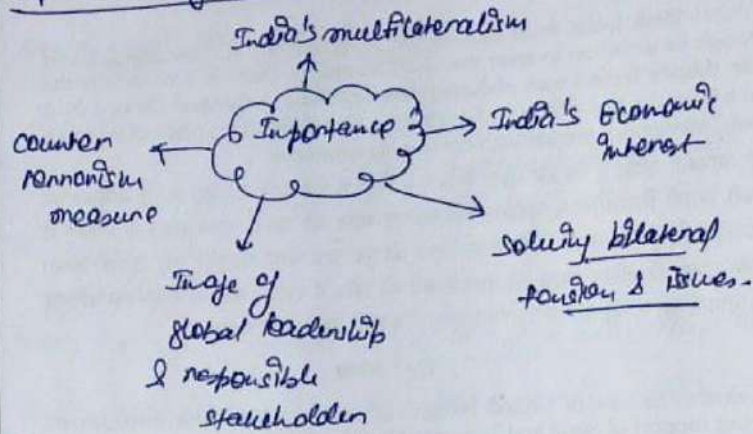 India's multilateralism
Importance
India's Economic
interest
solving bilateral
tension & issues.
Image of
global leadership
& responsible
stakeholder
counter
terrorism
measure